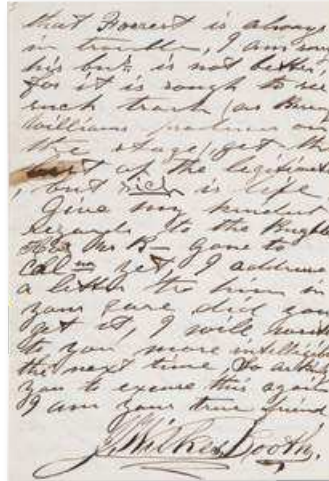 that Forrest is always
in trouble, I am sorry
his but is not better,
for it is rough to see
such trash (as
Williams produces on
the stage) get the
best of the legitimate
, but sich is life
Give my kindest
regards to the
Has Mr K- gone to
Cal yet, I addressed
a letter to him in
your care, did you
get it, I will write
to you more intelligibly
the next time, so asking
you to excuse this again
I am your true friend
J. Wilkes Booth.